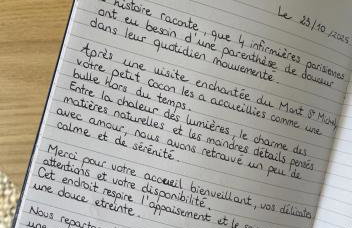 Le 25/10/2025
histoire raconte, que 4 infirmières parisiennes
ont eu besoin d'une parenthèse de douceur
dans leur quotidien mouvementé.
Après une visite enchantée du Mont St Michel
votre petit cocon les a accueillies comme une
bulle hors du temps.
Entre la chaleur des lumières, le charme des
matières naturelles et les moindres détails pensés
avec amour, nous avons retrouvé un peu de
calme et de sérénité.
Merci pour votre accueil bienveillant, vos délicates
attentions et votre disponibilité.
Cet endroit respire l'apaisement et le
une douce étreinte.
Nous
une